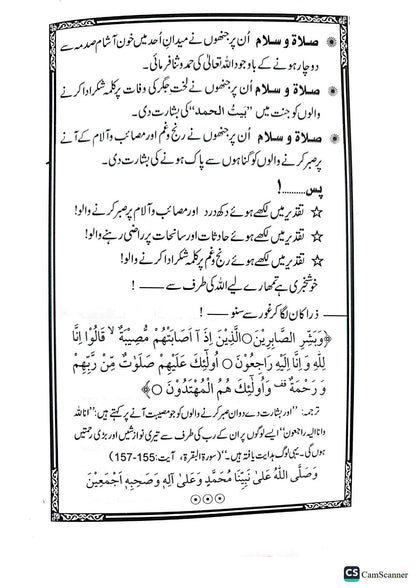 صلاة و سلام اُن پر جنھوں نے میدانِ اُحد میں خون آشام صدمہ سے
دو چار ہونے کے باوجود اللہ تعالیٰ کی حمد و ثنا فرمائی۔
صلاة و سلام اُن پر جنھوں نے لختِ جگر کی وفات پر کلمہ شکر ادا کرنے
والوں کو جنت میں ’’بَیتُ الحمد‘‘ کی بشارت دی۔
صلاة و سلام اُن پر جنھوں نے رنج و غم اور مصائب و آلام کے آنے
پر صبر کرنے والوں کو گناہوں سے پاک ہونے کی بشارت دی۔
پس..........!
☆ تقدیر میں لکھے ہوئے دکھ درد اور مصائب و آلام پر صبر کرنے والو!
☆ تقدیر میں لکھے ہوئے حادثات اور سانحات پر راضی رہنے والو!
☆ تقدیر میں لکھے ہوئے رنج و غم پر کلمہ شکر ادا کرنے والو!
خوشخبری ہے تمھارے لیے اللہ کی طرف سے —— !
ذرا کان لگا کر غور سے سنو —— !
﴿وَبَشِّرِ الصَّابِرِيْنَ○الَّذِيْنَ اِذَآ اَصَابَتْهُمْ مُّصِيْبَةٌ ۙ قَالُوْٓا اِنَّا
لِلّٰهِ وَاِنَّآ اِلَيْهِ رَاجِعُوْنَ○ اُولٰٓئِكَ عَلَيْهِمْ صَلَوٰتٌ مِّنْ رَّبِّهِمْ
وَرَحْمَةٌ ۗ وَاُولٰٓئِكَ هُمُ الْمُهْتَدُوْنَ○﴾
ترجمہ: ’’اور بشارت دے دو ان صبر کرنے والوں کو جو مصیبت آنے پر کہتے ہیں: ’’انا للہ
وانا الیہ راجعون‘‘ ایسے لوگوں پر ان کے رب کی طرف سے تیری نوازشیں اور بڑی رحمتیں
ہوں گی۔ یہی لوگ ہدایت یافتہ ہیں۔‘‘ (سورۃ البقرۃ، آیت: 155-157)
وَصَلَّى اللّٰهُ عَلٰى نَبِيِّنَا مُحَمَّدٍ وَعَلٰى آلِهٖ وَصَحْبِهٖ اَجْمَعِيْنَ
CS CamScanner